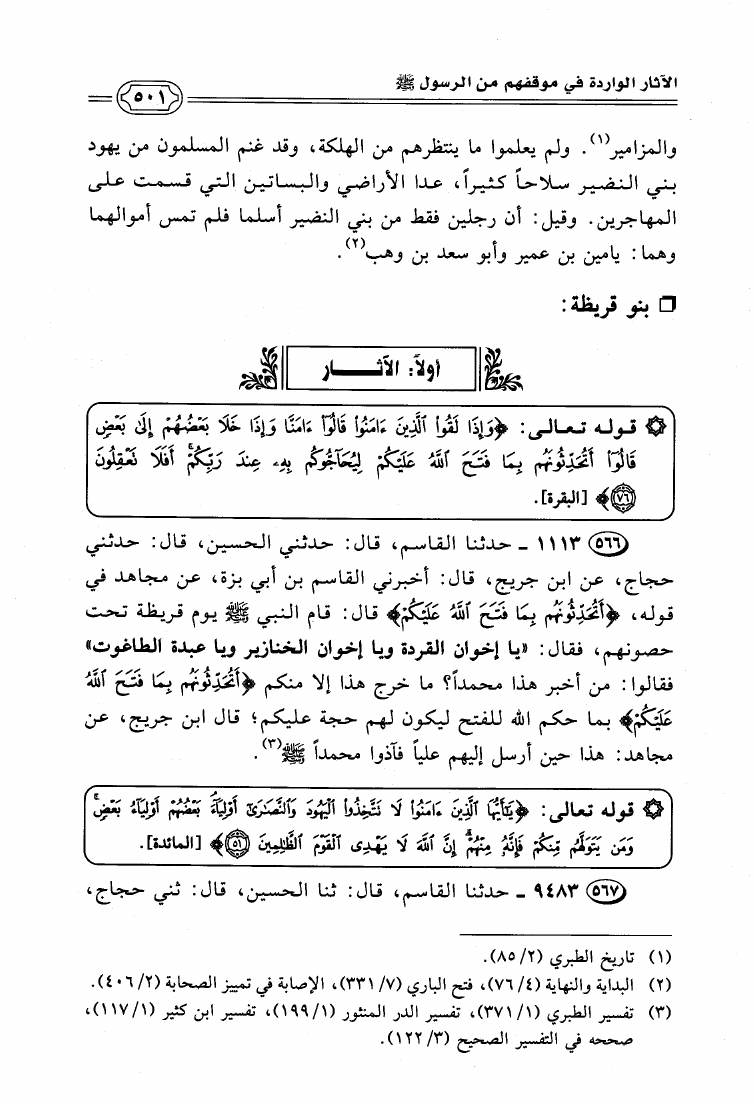 الآثار الواردة في موقفهم من الرسول ﷺ
٥٠١
والمزامير(١). ولم يعلموا ما ينتظرهم من الهلكة، وقد غنم المسلمون من يهود
بني النضير سلاحاً كثيراً، عدا الأراضي والبساتين التي قسمت على
المهاجرين. وقيل: أن رجلين فقط من بني النضير أسلما فلم تمس أموالهما
وهما: يامين بن عمير وأبو سعد بن وهب(٢).
❒ بنو قريظة:
أولاً: الآثـــار
۞ قوله تعالى: ﴿وَإِذَا لَقُوا۟ ٱلَّذِينَ ءَامَنُوا۟ قَالُوٓا۟ ءَامَنَّا وَإِذَا خَلَا بَعْضُهُمْ إِلَىٰ بَعْضٍ
قَالُوٓا۟ أَتُحَدِّثُونَهُم بِمَا فَتَحَ ٱللَّهُ عَلَيْكُمْ لِيُحَآجُّوكُم بِهِۦ عِندَ رَبِّكُمْ ۚ أَفَلَا نَعْقِلُونَ
٧٦﴾ [البقرة].
٥٦٦ ١١١٣ ـ حدثنا القاسم، قال: حدثني الحسين، قال: حدثني
حجاج، عن ابن جريج، قال: أخبرني القاسم بن أبي بزة، عن مجاهد في
قوله، ﴿أَتُحَدِّثُونَهُم بِمَا فَتَحَ ٱللَّهُ عَلَيْكُمْ﴾ قال: قام النبي ﷺ يوم قريظة تحت
حصونهم، فقال: «يا إخوان القردة ويا إخوان الخنازير ويا عبدة الطاغوت»
فقالوا: من أخبر هذا محمداً؟ ما خرج هذا إلا منكم ﴿أَتُحَدِّثُونَهُم بِمَا فَتَحَ ٱللَّهُ
عَلَيْكُمْ﴾ بما حكم الله للفتح ليكون لهم حجة عليكم؛ قال ابن جريج، عن
مجاهد: هذا حين أرسل إليهم علياً فآذوا محمداً ﷺ(٣).
۞ قوله تعالى: ﴿يَٰٓأَيُّهَا ٱلَّذِينَ ءَامَنُوا۟ لَا نَتَّخِذُوا۟ ٱلْيَهُودَ وَٱلنَّصَٰرَىٰٓ أَوْلِيَآءَ ۘ بَعْضُهُمْ أَوْلِيَآءُ بَعْضٍ ۚ
وَمَن يَتَوَلَّهُم مِّنكُمْ فَإِنَّهُۥ مِنْهُمْ ۗ إِنَّ ٱللَّهَ لَا يَهْدِى ٱلْقَوْمَ ٱلظَّٰلِمِينَ ٥١﴾ [المائدة].
٥٦٧ ٩٤٨٣ ـ حدثنا القاسم، قال: ثنا الحسين، قال: ثني حجاج،
(١) تاريخ الطبري (٨٥/٢).
(٢) البداية والنهاية (٧٦/٤)، فتح الباري (٣٣١/٧)، الإصابة في تمييز الصحابة (٤٠٦/٢).
(٣) تفسير الطبري (٣٧١/١)، تفسير الدر المنثور (١٩٩/١)، تفسير ابن كثير (١١٧/١)،
صححه في التفسير الصحيح (١٢٢/٣).